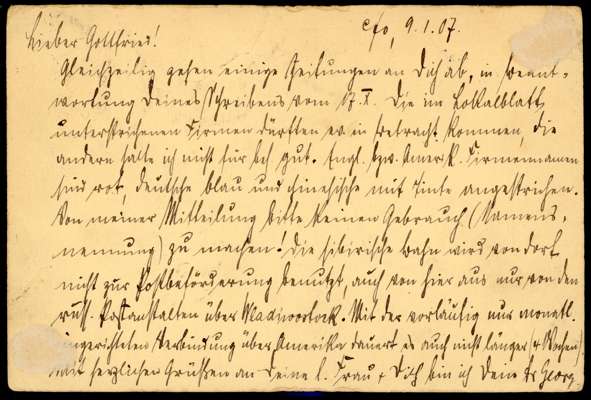 Cfo, 9.1.07.
Lieber Gottfried!
Gleichzeitig gehen einige Zeitungen an Dich ab, in Beant-
wortung Deines Schreibens vom 17.X. Die im Lokalblatt
unterstrichenen Firmen dürften ev. in Betracht kommen, die
andern halte ich nicht für gut. Engl. bzw. Amerik. Firmennamen
sind rot, deutsche blau und chinesische mit Tinte angestrichen.
Von meiner Mitteilung bitte keinen Gebrauch (Namens-
nennung) zu machen! Die sibirische Bahn wird von dort
nicht zur Postbeförderung benutzt, auch von hier aus nur von den
russ. Postanstalten über Wladiwostock. Mit der vorläufig nur monatl.
eingerichteten Verbindung über Amerika dauert es auch nicht länger (Wochen)
Mit herzlichen Grüßen an Deine l. Frau + Dich bin ich Dein Georg